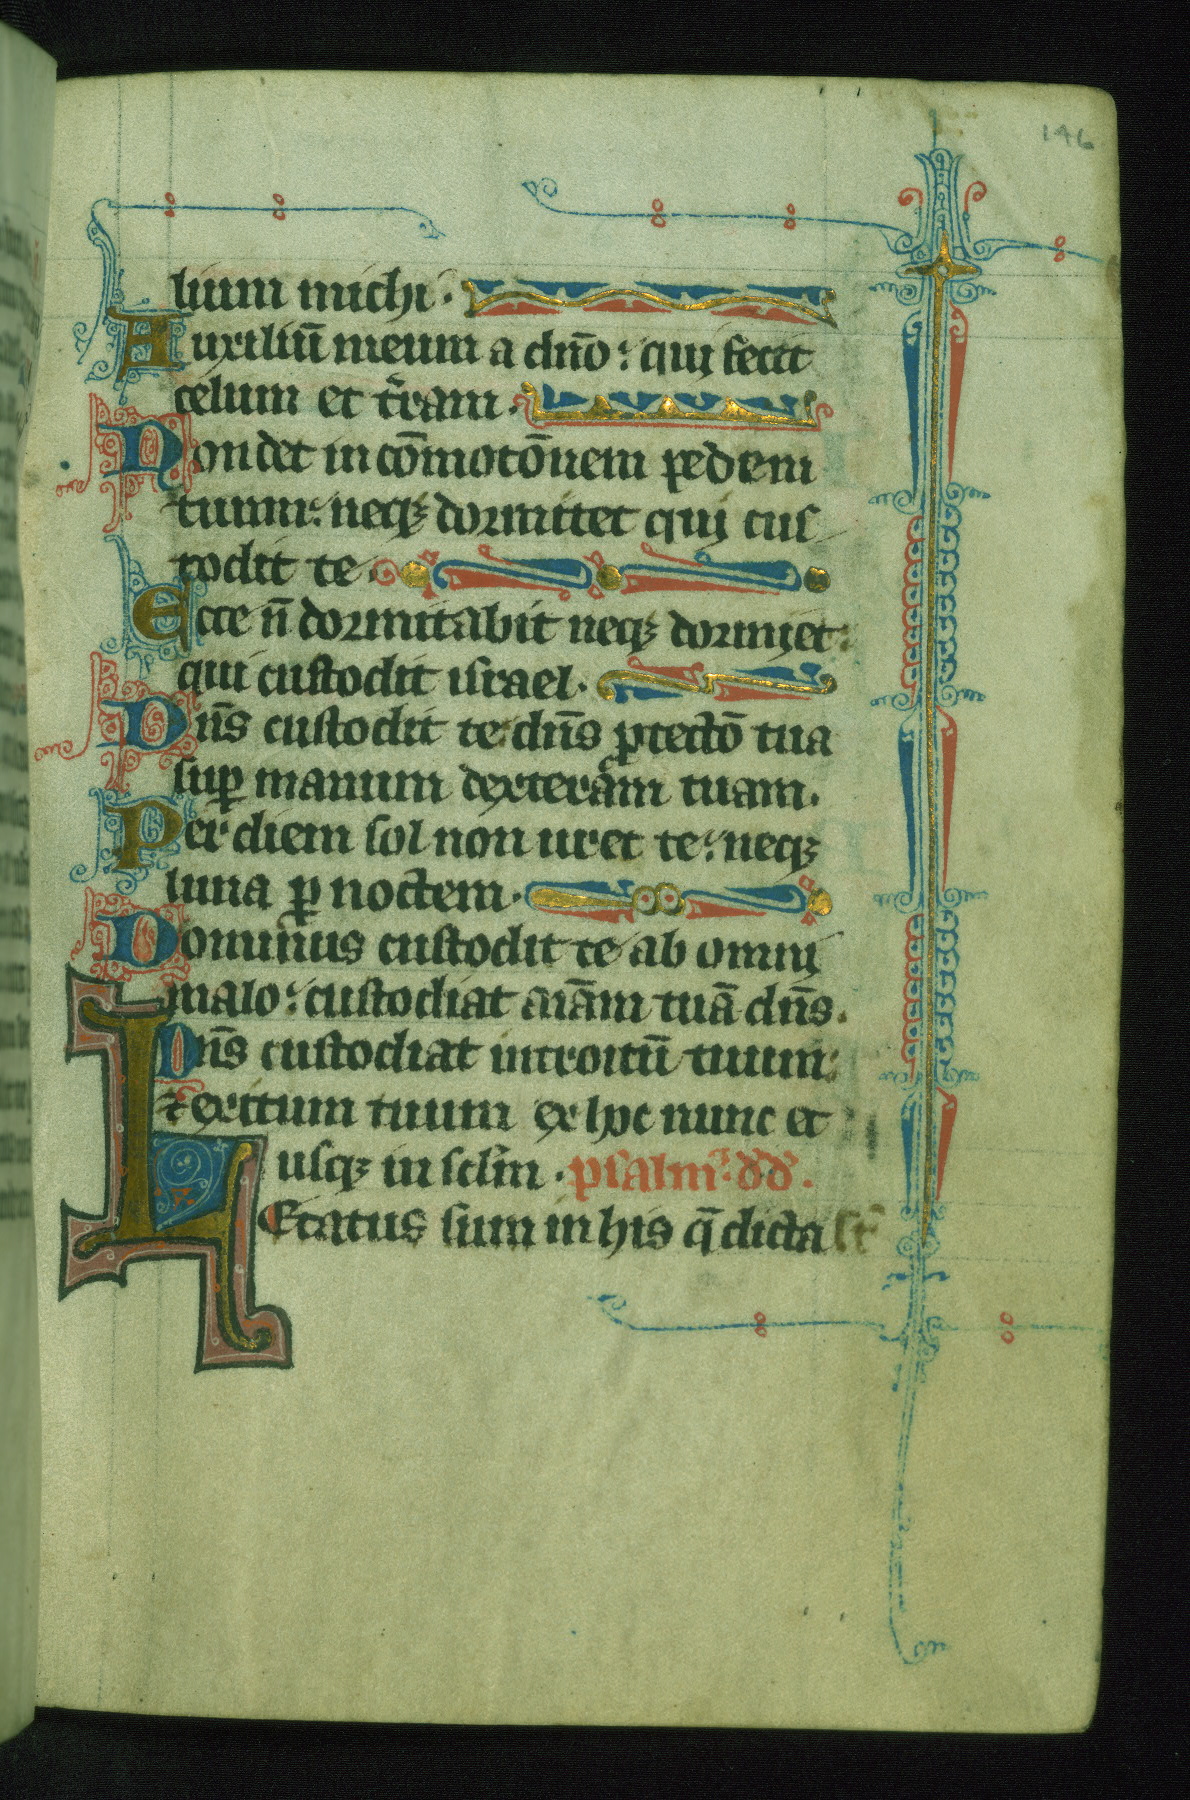 146
lium michi ·
Auxiliū meum a dn̄o : qui fecit
celum et t̄ram ·
Non det in cōmotōnem pedem
tuum : neqꝫ dormitet qui cus
todit te ·
Ecce n̄ dormitabit neqꝫ dormiet :
qui custodit israel ·
Dn̄s custodit te dn̄s ꝓtectō tua
suꝑ manum dexteram tuam ·
Per diem sol non uret te : neqꝫ
luna ꝑ noctem ·
Dominus custodit te ab omni
malo : custodiat aīam tuā dn̄s ·
Dn̄s custodiat introitū tuum :
⁊ exitum tuum ex hoc nunc et
usqꝫ in sclm̄ · psalmꝰ dd̄ .
LEtatus sum in his q̄ dicta st̄